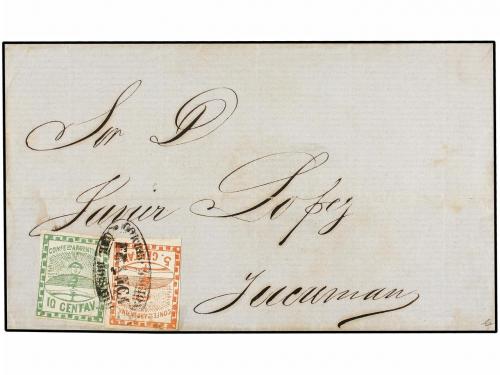 Sor D
Javier Lopez
Tucuman
CONFEON ARGENTINA
10 CENTAV.
CONFEON ARGENTINA
5. CENTAV.